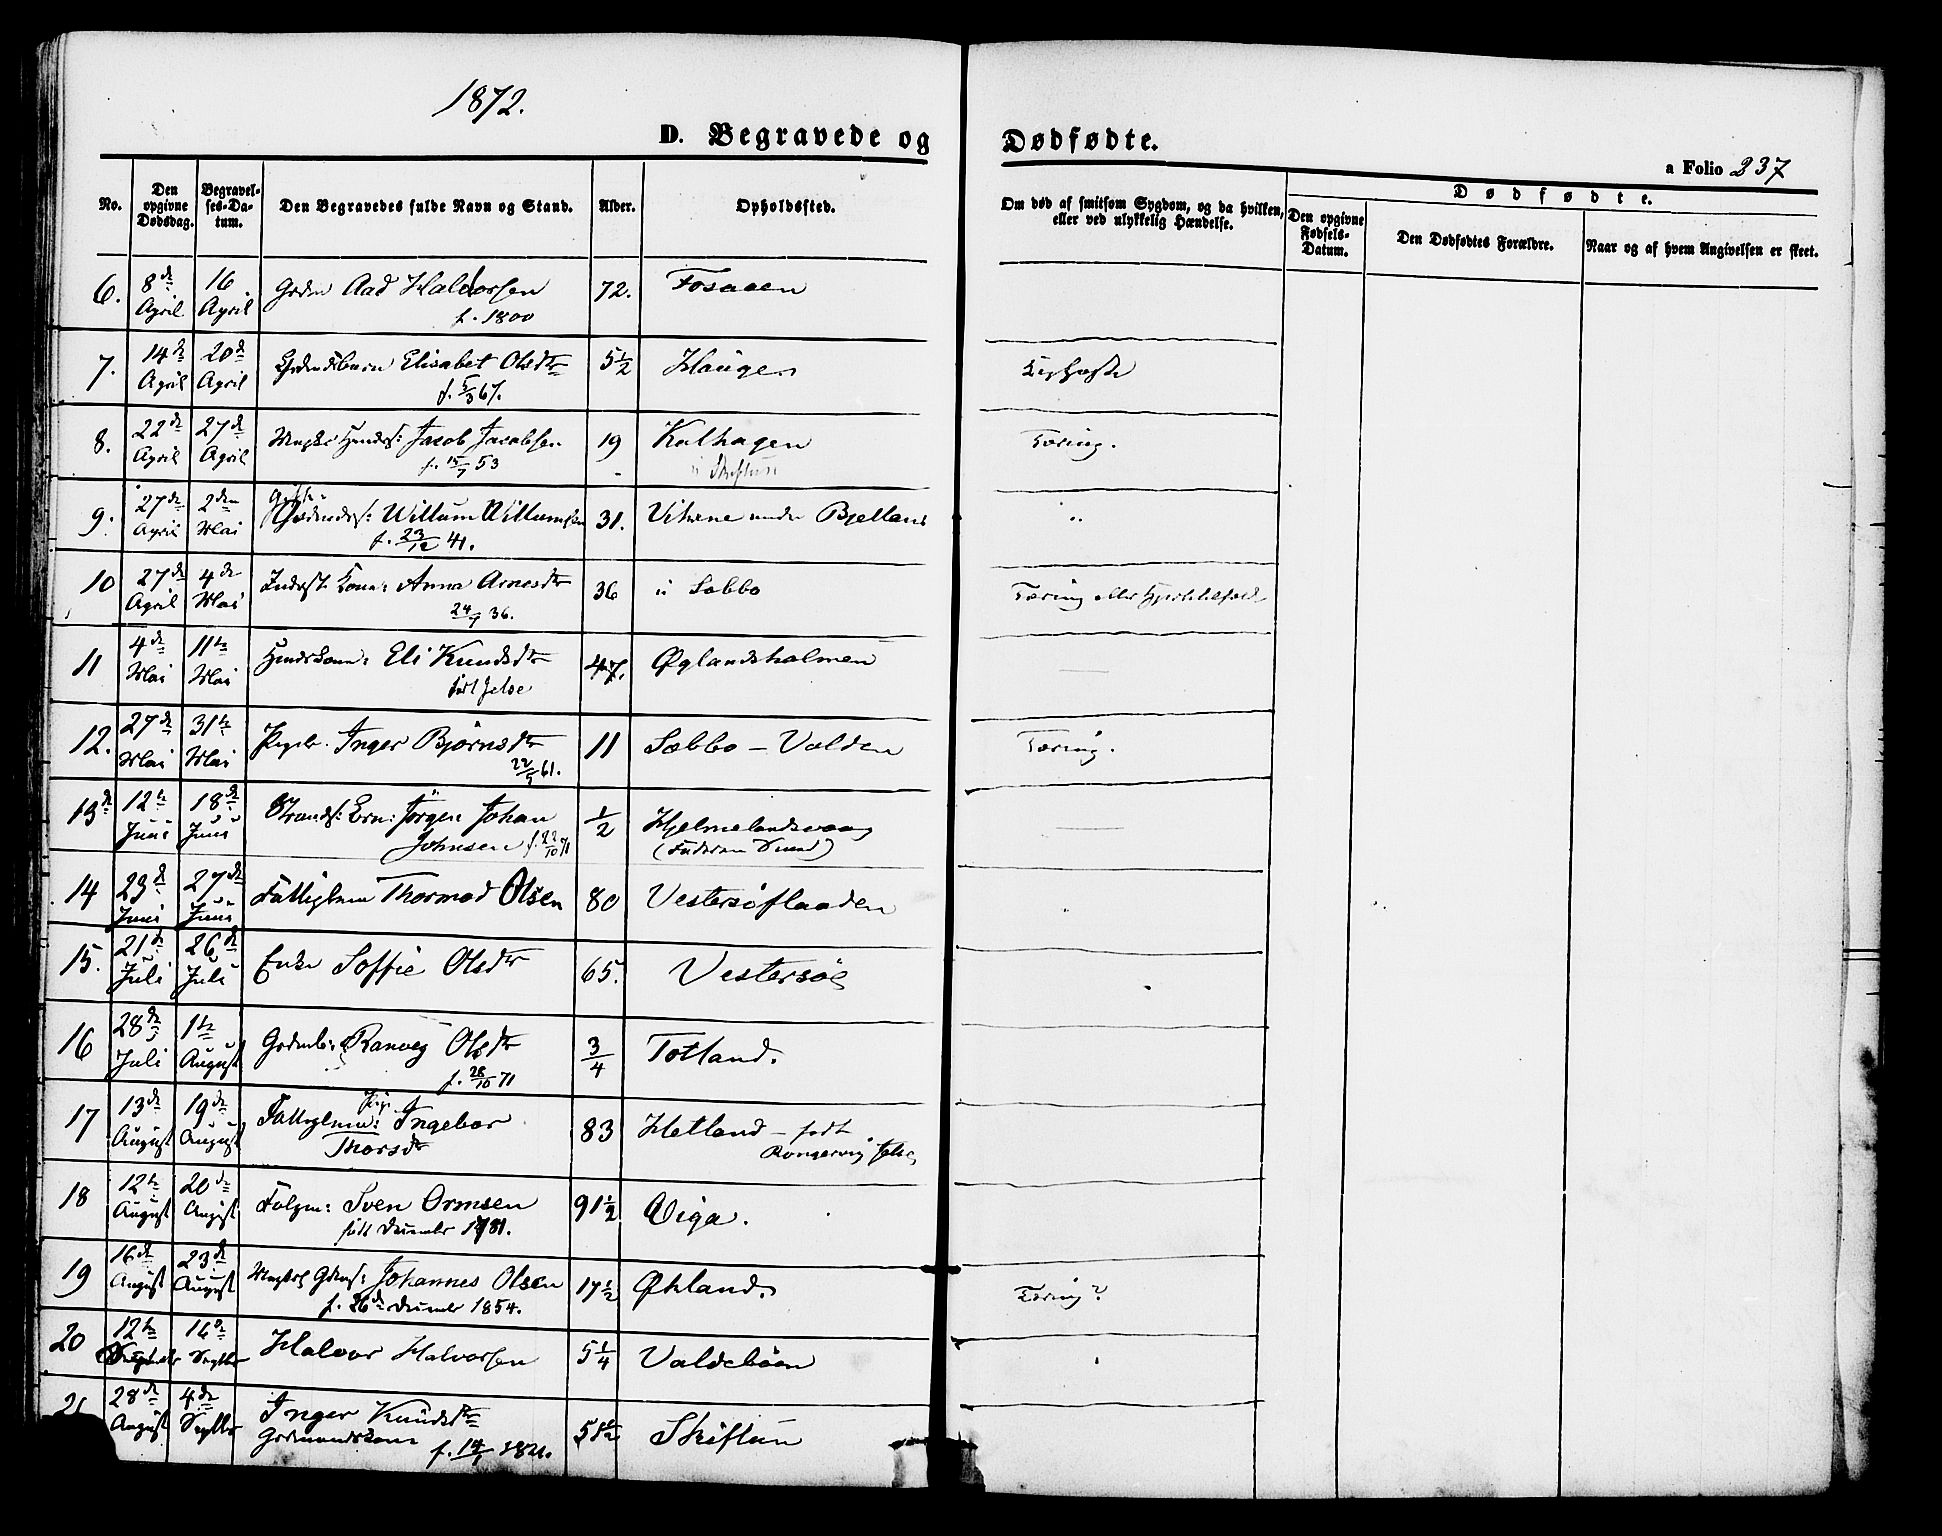 1872.
D. Begravede og Dødfødte.
a Folio 237
No.
Den opgivne Dødsdag.
Begravelses-Datum.
Den Begravedes fulde Navn og Stand.
Alder.
Opholdssted.
Om død af smitsom Sygdom, og da hvilken, eller ved ulykkelig Hændelse.
Dødfødte.
Den opgivne Fødsels-Datum.
Den Dødfødtes Forældre.
Naar og af hvem Angivelsen er skeet.
6. 8de April 16 April Gdm Aad Halvorsen 72. Fosaaen
f. 1800
7. 14de April 20de April Elisabet Olsdtr 5½ Haugen
f. 5/3 67.
8. 22de April 27de April Jacob Jacobsen 19 Kalhagen Tæring.
f. 15/7 53
9. 27de April 2den Mai Gifte Willum Willumsen 31. under Bjelland "
f. 23/12 41.
10 27de April 4de Mai Anna Arnesdtr 36 Sæbbø Tæring eller
24/9 36.
11 4de Mai 11te Mai Eli Knudsdtr 47. Øglandsholmen
født Jelse
12. 27de Mai 31te Mai Inger Bjørnsdtr 11 Sæbbø - Volden Tæring.
22/5 61.
13de 12te Juni 18de Juni Jørgen Johan ½ Hjelmelandsvaag
Johnsen f. 22/10 71
14 23de Juni 27de Juni Fattiglem Thormod Olsen 80 Vestersøflaaden
15. 21de Juli 26de Juli Enke Soffie Olsdtr 65. Vestersøe
16 28de Juli 1te August Ranveg Olsdtr ¾ Totland.
f. 28/10 71
17 13de August 19de August Fattiglem: Pige Ingebor 83 Hetland - født
Thorsdtr Jelse
18 12te August 20de August Folgm: Sven Ormsen 91½ Viga.
født December 1781.
19 16de August 23de August Johannes Olsen 17½ Økland. Tæring?
f. 26de December 1854.
20 12te 16de Septbr Halvor Halvorsen 5¼ Valdebøen
21 28de August 4de Septbr Inger Knudsdtr 58½ Skiftun
Gårdmandskone